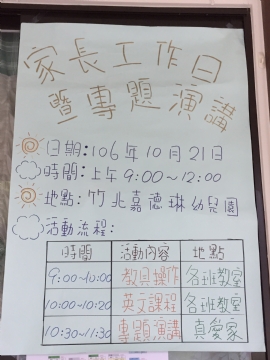 家長工作日
暨專題演講
日期:106年10月21日
時間:上午9:00~12:00
地點:竹北嘉德琳幼兒園
活動流程:
時間 活動內容 地點
9:00~10:00 教具操作 各班教室
10:00~10:20 英文課程 各班教室
10:30~11:30 專題演講 真愛家